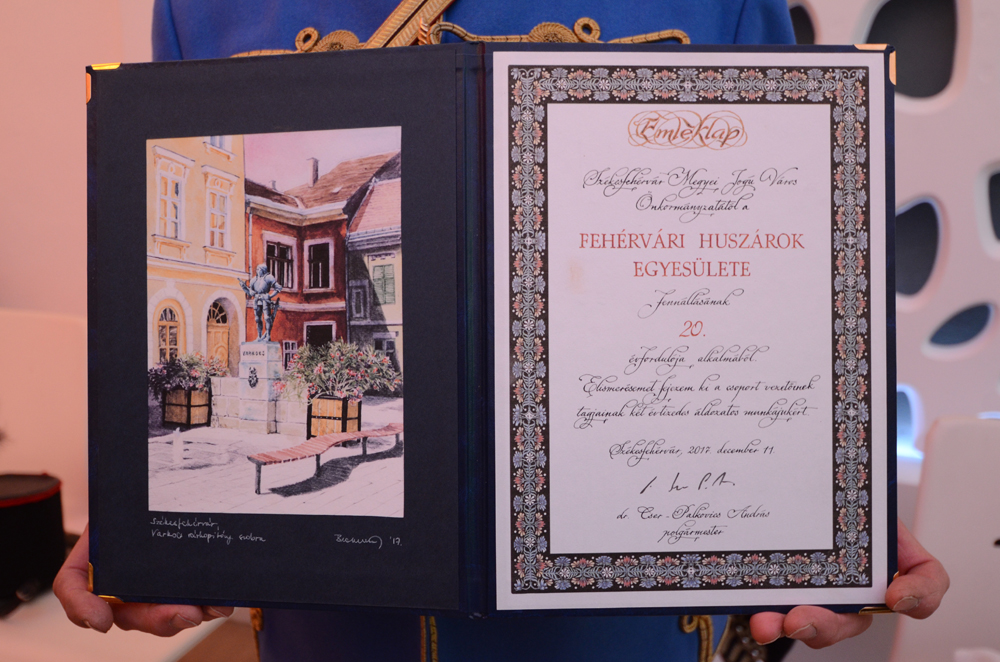 VARKOCS
Székesfehérvár
Varkocs várkapitány szobra
'17
Emléklap
Székesfehérvár Megyei Jogú Város
Önkormányzatától a
FEHÉRVÁRI HUSZÁROK
EGYESÜLETE
Fennállásának
20.
évfordulója alkalmából.
Elismerésemet fejezem ki a csoport vezetőinek
tagjainak két évtizedes áldozatos munkájukért.
Székesfehérvár, 2017. december 11
dr. Cser-Palkovics András
polgármester